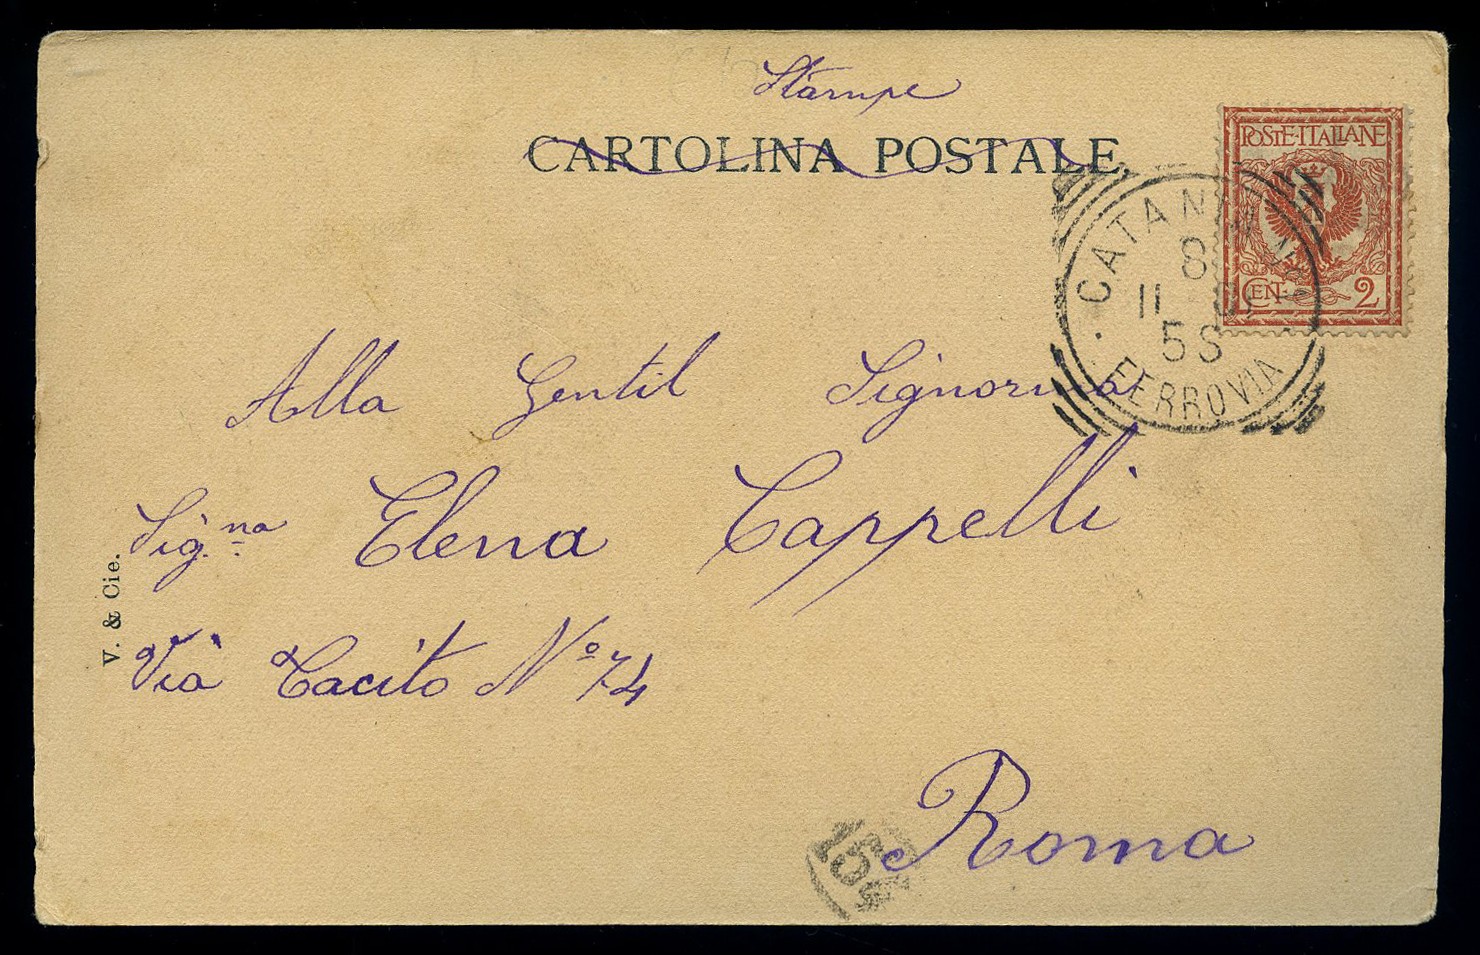 Stampe
CARTOLINA POSTALE.
POSTE·ITALIANE
CENT. 2
CATANZARO
8
11
5S
FERROVIA
Alla Gentil Signorina
Sig.na Elena Cappelli
Via Tacito No 74
Roma
V. & Cie.
154